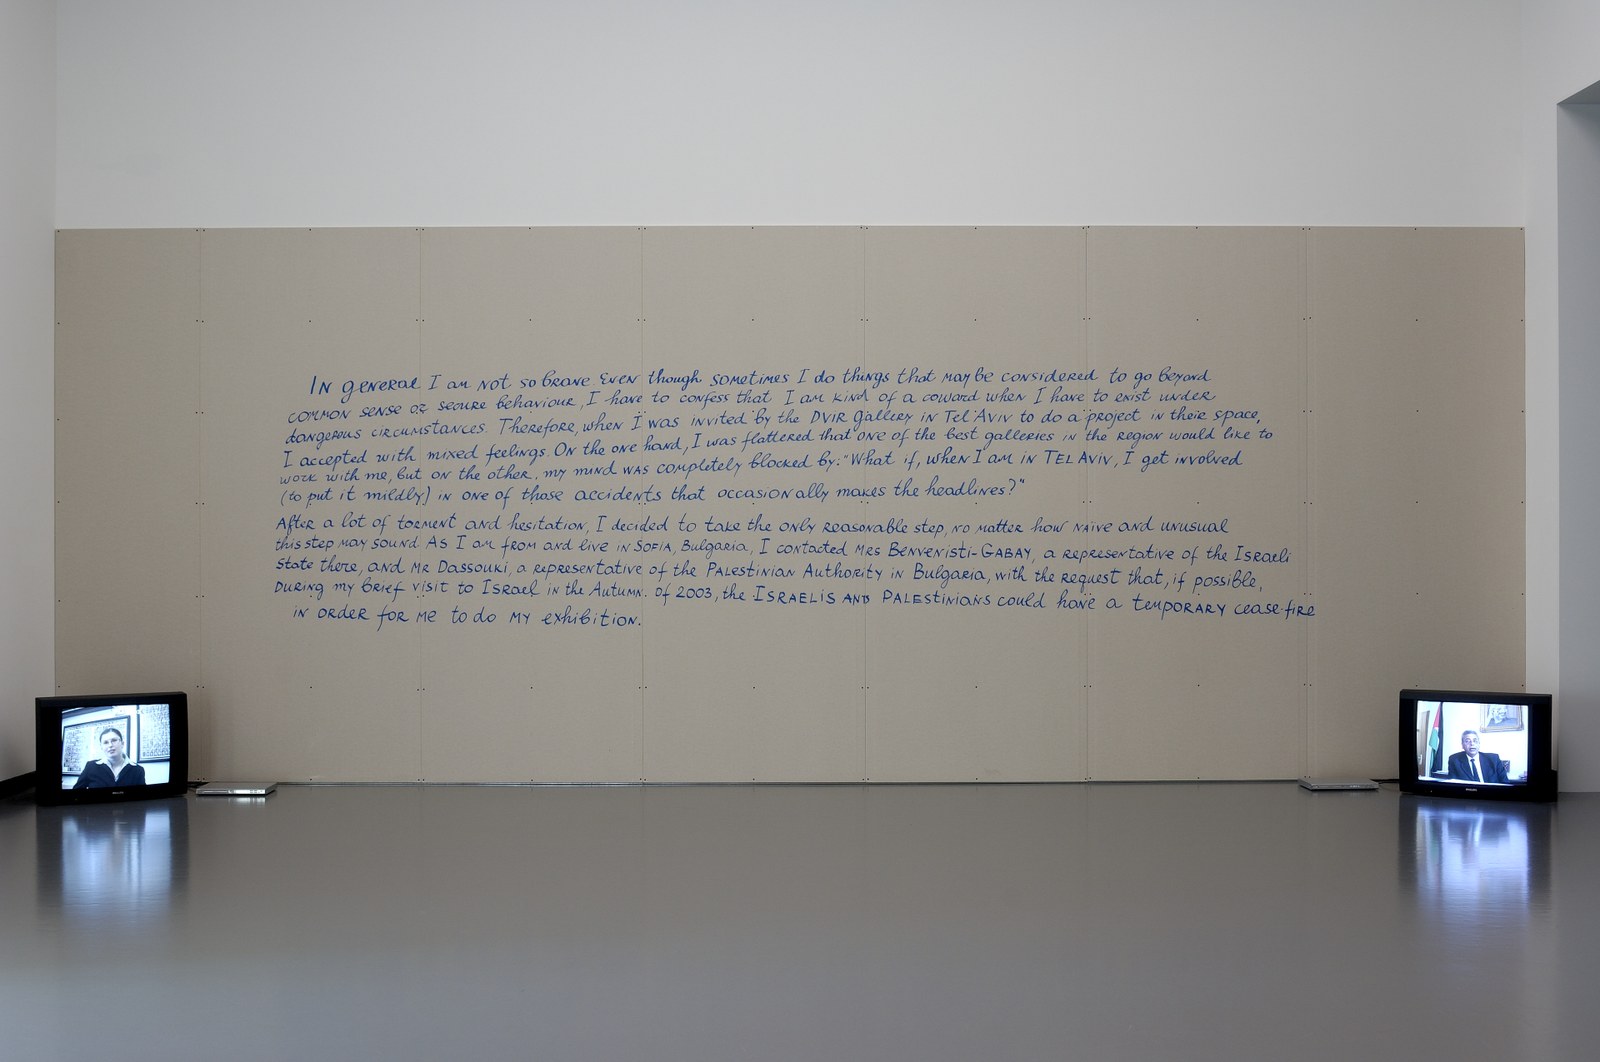 In general I am not so brave. Even though sometimes I do things that may be considered to go beyond
common sense or secure behaviour, I have to confess that I am kind of a coward when I have to exist under
dangerous circumstances. Therefore, when I was invited by the DVIR gallery in Tel Aviv to do a project in their space,
I accepted with mixed feelings. On the one hand, I was flattered that one of the best galleries in the region would like to
work with me, but on the other, my mind was completely blocked by: "What if, when I am in TEL AVIV, I get involved
(to put it mildly) in one of those accidents that occasionally makes the headlines?"
After a lot of torment and hesitation, I decided to take the only reasonable step, no matter how naive and unusual
this step may sound. As I am from and live in Sofia, Bulgaria, I contacted Mrs Benvenisti-Gabay, a representative of the Israeli
State there, and Mr Dassouki, a representative of the Palestinian Authority in Bulgaria, with the request that, if possible,
during my brief visit to Israel in the Autumn. of 2003, the ISRAELIS AND PALESTINIANS could have a temporary cease-fire
in order for me to do my exhibition.
PHILIPS
PHILIPS